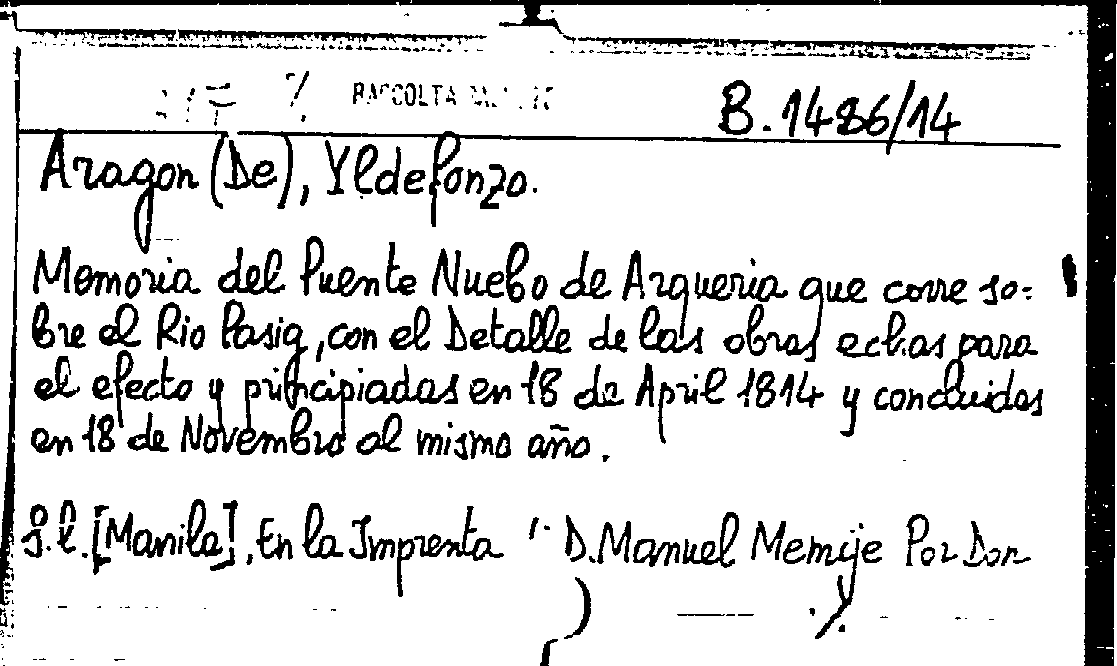 RACCOLTA
B.1486/14
Aragon (De), Yldefonzo.
Memoria del Puente Nuebo de Arqueria que corre so=
bre el Rio Pasig, con el Detalle de las obras echas para
el efecto y principiadas en 18 de April 1814 y concluidas
en 18 de Novembro al mismo año.
S.l. [Manila], En la Imprenta D. Manuel Memije Por Don
./.